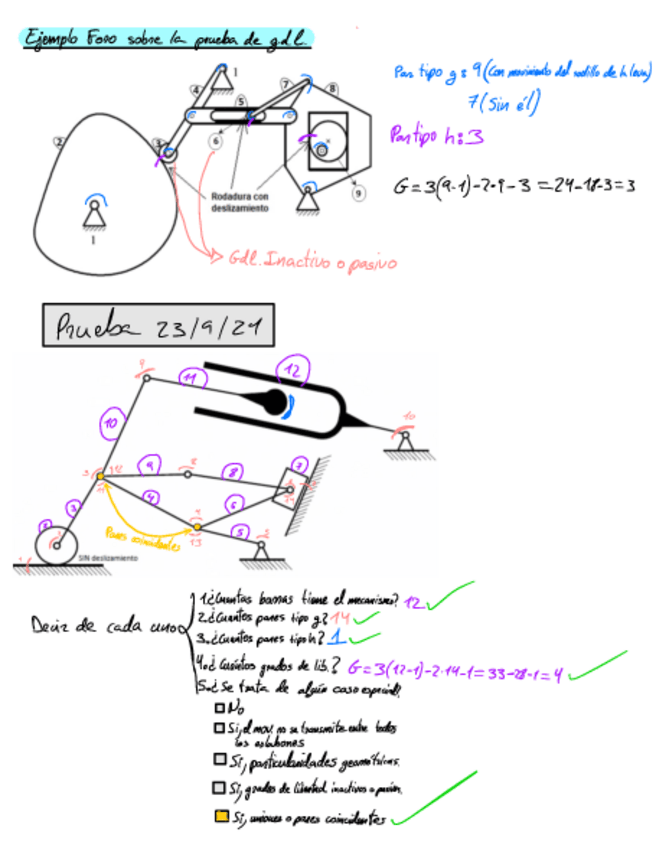 Ejemplo Foro sobre la prueba de g.d.l.
Par tipo g: 9 (Con movimiento del rodillo de la leva)
7 (Sin él)
Par tipo h: 3
G = 3(9-1)-2·9-3 = 24-18-3=3
1
4
7
8
5
2
3
6
9
1
Rodadura con
deslizamiento
Gdl. Inactivo o pasivo
Prueba 23/9/21
9
11
12
10
10
9
8
7
3
4
6
5
2
13
Pares coincidentes
SIN deslizamiento
Decir de cada uno
1.¿Cuantas barras tiene el mecanismo? 12
2.¿Cuantos pares tipo g? 14
3.¿Cuantos pares tipo h? 1
4.¿Cuántos grados de lib.? G=3(12-1)-2·14-1=33-28-1=4
5.¿Se trata de algún caso especial?
No
Si, el mov. no se transmite entre todos
los eslabones
Si, particularidades geométricas.
Si, grados de libertad inactivos o pasivos.
Si, uniones o pares coincidentes